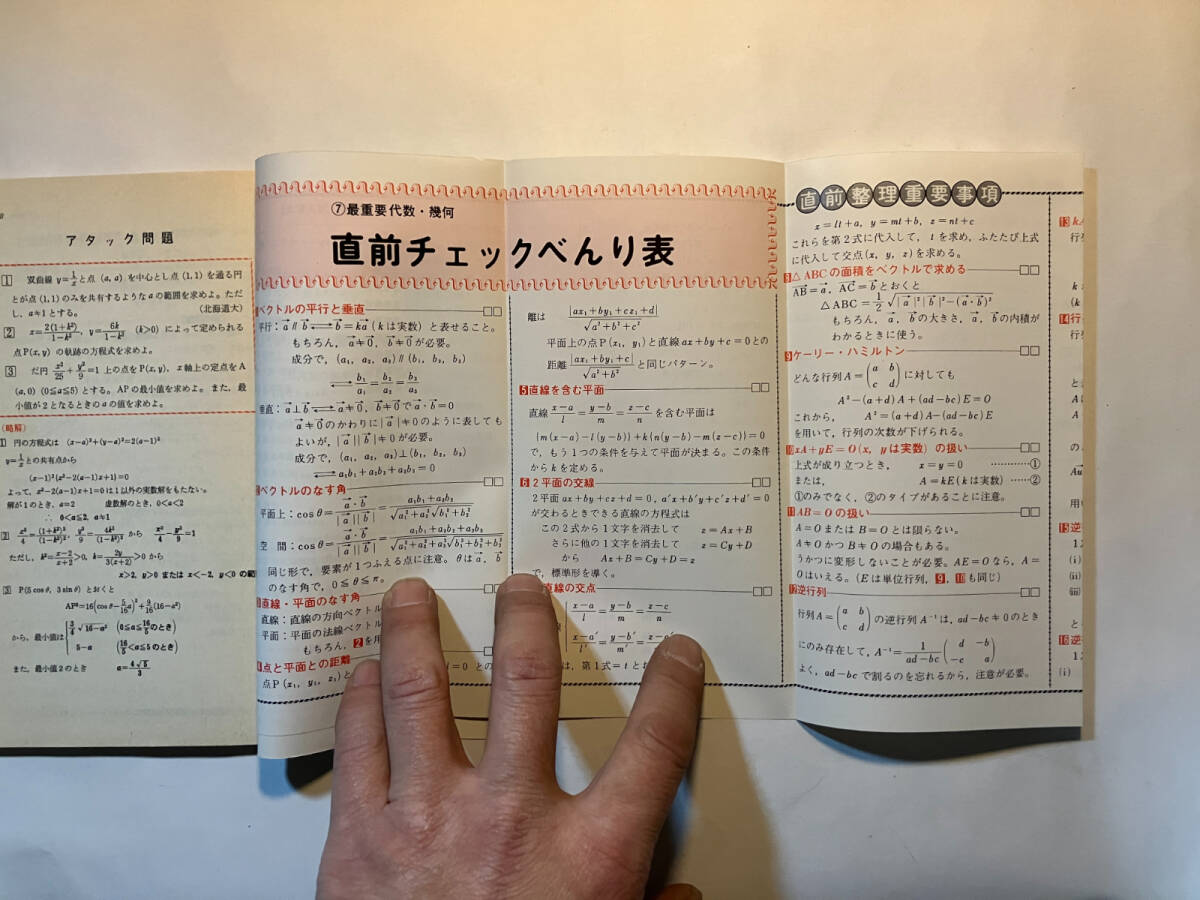 アタック問題
1 双曲線 y=1/x と点 (a, a) を中心とし点 (1, 1) を通る円
とが点 (1, 1) のみを共有するような a の範囲を求めよ。ただ
し、a≠1 とする。 (北海道大)
2 x=2(1+k²)/(1-k²), y=6k/(1-k²) (k>0) によって定められる
点 P(x, y) の軌跡の方程式を求めよ。
3 だ円 x²/25+y²/9=1 上の点を P(x, y)、x 軸上の定点を A
(a, 0) (0≦a≦5) とする。AP の最小値を求めよ。また、最
小値が 2 となるときの a の値を求めよ。
(略解)
1 円の方程式は (x-a)²+(y-a)²=2(a-1)²
y=1/x との共有点から
(x-1)²{x²-2(a-1)x+1}=0
よって、x²-2(a-1)x+1=0 は 1 以外の実数解をもたない。
解が 1 のとき、a=2 虚数解のとき、0<a<2
∴ 0<a≦2, a≠1
2 x²/4=(1+k²)²/(1-k²)², y²/9=4k²/(1-k²)² から x²/4-y²/9=1
ただし、k²=(x-2)/(x+2)>0, k=2y/3(x+2)>0 から
x>2, y>0 または x<-2, y<0 の範
3 P(5cosθ, 3sinθ) とおくと
から、最小値は 3/4√(16-a²) (0≦a≦16/5 のとき)
5-a (16/5<a≦5 のとき)
また、最小値 2 のとき a=4√5/3
⑦最重要代数・幾何
直前チェックべんり表
ベクトルの平行と垂直
平行：a⃗∥b⃗⟷b⃗=ka⃗ (k は実数) と表せること。
もちろん、a⃗≠0⃗, b⃗≠0⃗ が必要。
成分で、(a₁, a₂, a₃)∥(b₁, b₂, b₃)
⟷b₁/a₁=b₂/a₂=b₃/a₃
垂直：a⃗⊥b⃗⟷a⃗≠0⃗, b⃗≠0⃗ で a⃗・b⃗=0
a⃗≠0⃗ のかわりに |a⃗|≠0 のように表しても
よいが、|a⃗||b⃗|≠0 が必要。
成分で、(a₁, a₂, a₃)⊥(b₁, b₂, b₃)
⟷a₁b₁+a₂b₂+a₃b₃=0
ベクトルのなす角
平面上：cosθ=a⃗・b⃗/|a⃗||b⃗|=(a₁b₁+a₂b₂)/√(a₁²+a₂²)√(b₁²+b₂²)
空 間：cosθ=a⃗・b⃗/|a⃗||b⃗|=(a₁b₁+a₂b₂+a₃b₃)/√(a₁²+a₂²+a₃²)√(b₁²+b₂²+b₃²)
同じ形で、要素が1つふえる点に注意。θ は a⃗, b⃗
のなす角で、0≦θ≦π。
直線・平面のなす角
直線：直線の方向ベクトル
平面：平面の法線ベクトル
もちろん、2 を用
点と平面との距離
点 P (x₁, y₁, z₁) と
d=0 との
離は |ax₁+by₁+cz₁+d|/√(a²+b²+c²)
平面上の点 P(x₁, y₁) と直線 ax+by+c=0 との
距離 |ax₁+by₁+c|/√(a²+b²) と同じパターン。
5 直線を含む平面
直線 (x-a)/l=(y-b)/m=(z-c)/n を含む平面は
{m(x-a)-l(y-b)}+k{n(y-b)-m(z-c)}=0
で、もう1つの条件を与えて平面が決まる。この条件
から k を定める。
6 2平面の交線
2平面 ax+by+cz+d=0, a'x+b'y+c'z+d'=0
が交わるときできる直線の方程式は
この2式から1文字を消去して z=Ax+B
さらに他の1文字を消去して z=Cy+D
から Ax+B=Cy+D=z
で、標準形を導く。
直線の交点
(x-a)/l=(y-b)/m=(z-c)/n
(x-a')/l'=(y-b')/m'=
は、第1式=t とお
直前整理重要事項
x=lt+a, y=mt+b, z=nt+c
これらを第2式に代入して、t を求め、ふたたび上式
に代入して交点(x, y, z)を求める。
8 △ABC の面積をベクトルで求める
AB⃗=a⃗, AC⃗=b⃗ とおくと
△ABC=1/2√(|a⃗|²|b⃗|²-(a⃗・b⃗)²)
もちろん、a⃗, b⃗ の大きさ、a⃗, b⃗ の内積が
わかるときに使う。
9 ケーリー・ハミルトン
どんな行列 A=(a b / c d) に対しても
A²-(a+d)A+(ad-bc)E=O
これから、 A²=(a+d)A-(ad-bc)E
を用いて、行列の次数が下げられる。
10 xA+yE=O (x, y は実数) の扱い
上式が成り立つとき、 x=y=0 …………①
または、 A=kE (k は実数) ……②
①のみでなく、②のタイプがあることに注意。
11 AB=O の扱い
A=O または B=O とは限らない。
A≠O かつ B≠O の場合もある。
うかつに変形しないことが必要。AE=O なら、A=
O はいえる。(E は単位行列、9, 10 も同じ)
12 逆行列
行列 A=(a b / c d) の逆行列 A⁻¹ は、ad-bc≠0 のとき
にのみ存在して、A⁻¹=1/(ad-bc)(d -b / -c a)
よく、ad-bc で割るのを忘れるから、注意が必要。
13 kA
行列
14 行
15 逆
(i)
(ii)
(iii)
16 逆
(i)